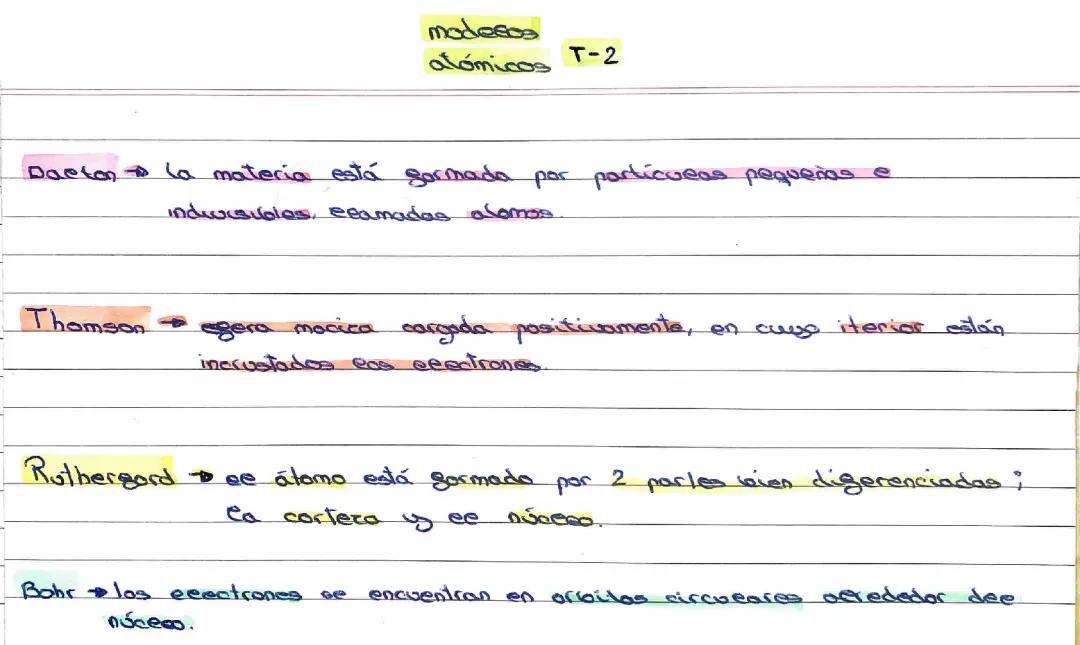 modelos
atómicos T-2
Dalton → la materia está formada por partículas pequeñas e
indivisibles, llamadas atomos.
Thomson → esfera maciza cargada positivamente, en cuyo iterior están
incrustados los electrones.
Rutherford → el átomo está formado por 2 partes bien diferenciadas;
la corteza y el núcleo.
Bohr → los electrones se encuentran en orbitas circulares alrededor del
núcleo.